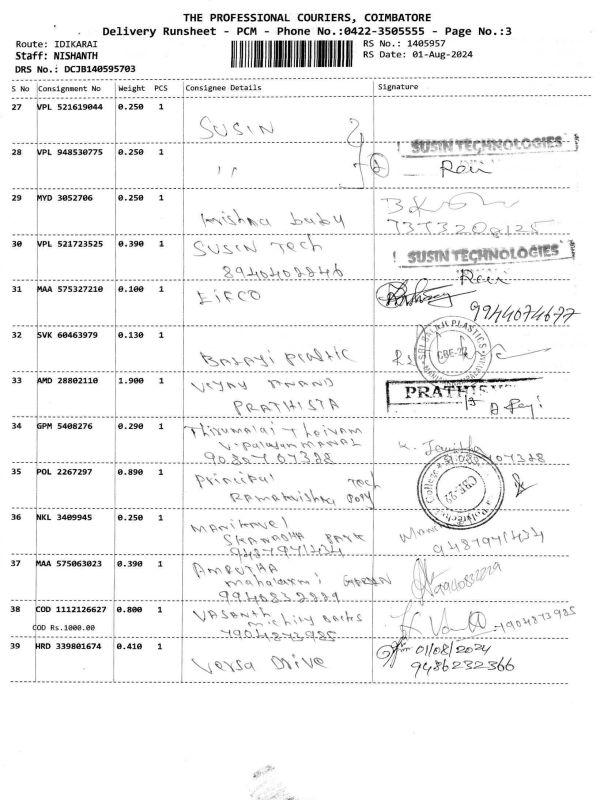 THE PROFESSIONAL COURIERS, COIMBATORE
Delivery Runsheet - PCM - Phone No.:0422-3505555 - Page No.:3
Route: IDIKARAI
RS No.: 1405957
Staff: NISHANTH
RS Date: 01-Aug-2024
DRS No.: DCJB140595703
S No Consignment No Weight PCS Consignee Details Signature
27 VPL 521619044 0.250 1
SUSIN
SUSIN TECHNOLOGIES
28 VPL 948530775 0.250 1
" Ravi
29 MYD 3052706 0.250 1
krishna baby
30 VPL 521723525 0.390 1
SUSIN Tech
SUSIN TECHNOLOGIES
8940402846
Ravi
31 MAA 575327210 0.100 1
EIFCO
9944074677
32 SVK 60463979 0.130 1
SRI BALAJI PLASTICS
CBE-22
BALAJI PLASTIC
33 AMD 28802110 1.900 1
VIJAY ANAND
PRATHIS
PRATHISTA
34 GPM 5408276 0.290 1
Thirumalai Thoivam
9080707328
35 POL 2267297 0.890 1
Principal Tech
CBE-22
Ramakrishna Poly
36 NKL 3409945 0.250 1
Manikavel
9487971434
9487971434
37 MAA 575063023 0.390 1
AMRUTHA
mahalaxmi GARDEN
9940832229
9940832229
38 COD 1112126627 0.800 1
VASANTH
COD Rs.1000.00
7904873985
7904873985
39 HRD 339801674 0.410 1
Versa Drive
01/08/2024
9486232366